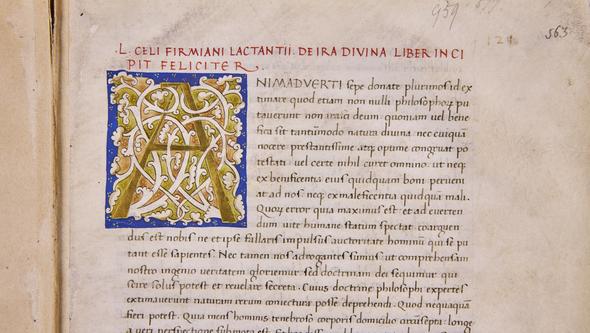 959
121
563
.L. CELI FIRMIANI LACTANTII. DE IRA DIVINA LIBER INCI
PIT FELICITER.
ANIMADVERTI sepe donate plurimos id ex
timare quod etiam non nulli philosophoꝝ pu
tauerunt non irasci deum. quoniam uel bene
fica sit tantũmodo natura diuina. nec cuiquã
nocere prestantissime atqꝫ optime congruat po
testati. uel certe nihil curet omnino. ut neqꝫ
ex beneficentia eius quidquam boni perueni
at ad nos. neqꝫ ex maleficentia quidquã mali.
Quorꝫ error quia maximus est. et ad euerten
dum uite humane statum spectat. coarguen
dus est nobis. ne et ipse fallaris impulsus auctoritate hominũ qui se pu
tant esse sapientes. Nec tamen nos adrogantes sumus. ut comprehensam
nostro ingenio ueritatem gloriemur. sed doctrinam dei sequimur qui
scire solus potest et reuelare secreta. Cuius doctrine philosophi expertes
extimauerunt naturam rerum coniectura posse deprehendi. Quod nequaquã
fieri potest. Quia mens hominis tenebroso corporis domicilio circũsepta. longe
a ueri perspectione submota est.